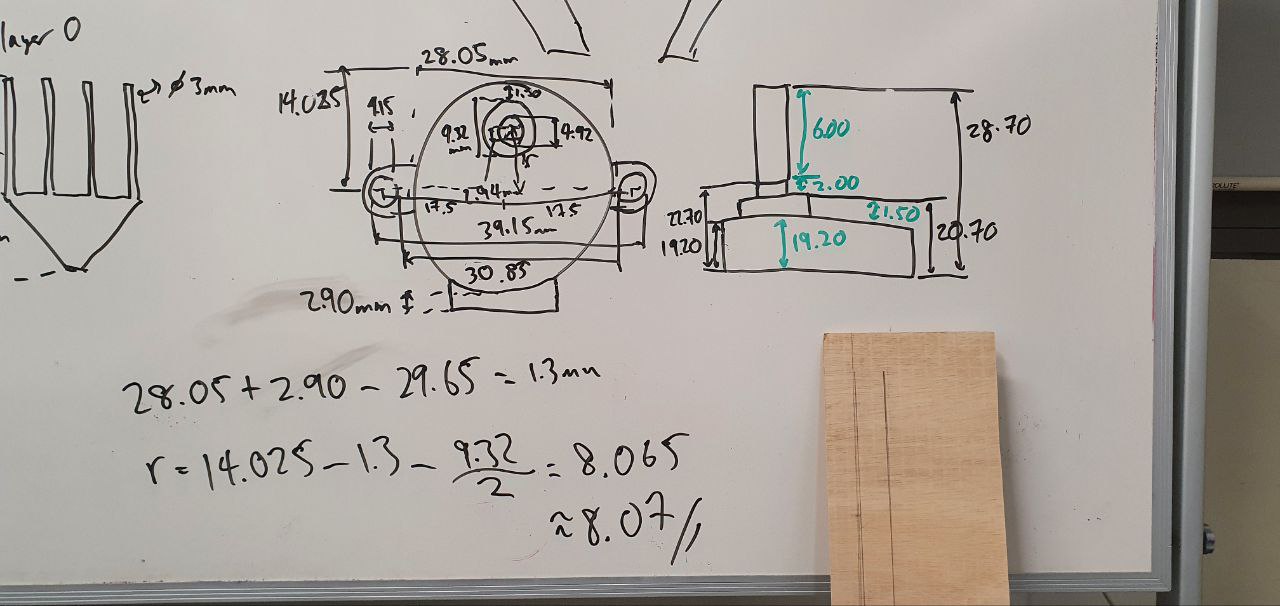 layer 0
⌀ 3mm
28.05mm
14.025
4.15
1.30
9.32
mm
4.92
17.5
17.5
39.15mm
30.85
2.90mm
6.00
2.00
28.70
22.70
1.50
19.20
19.20
20.70
28.05 + 2.90 - 29.65 = 1.3mm
r = 14.025 - 1.3 - 9.32/2 = 8.065
≈ 8.07 //